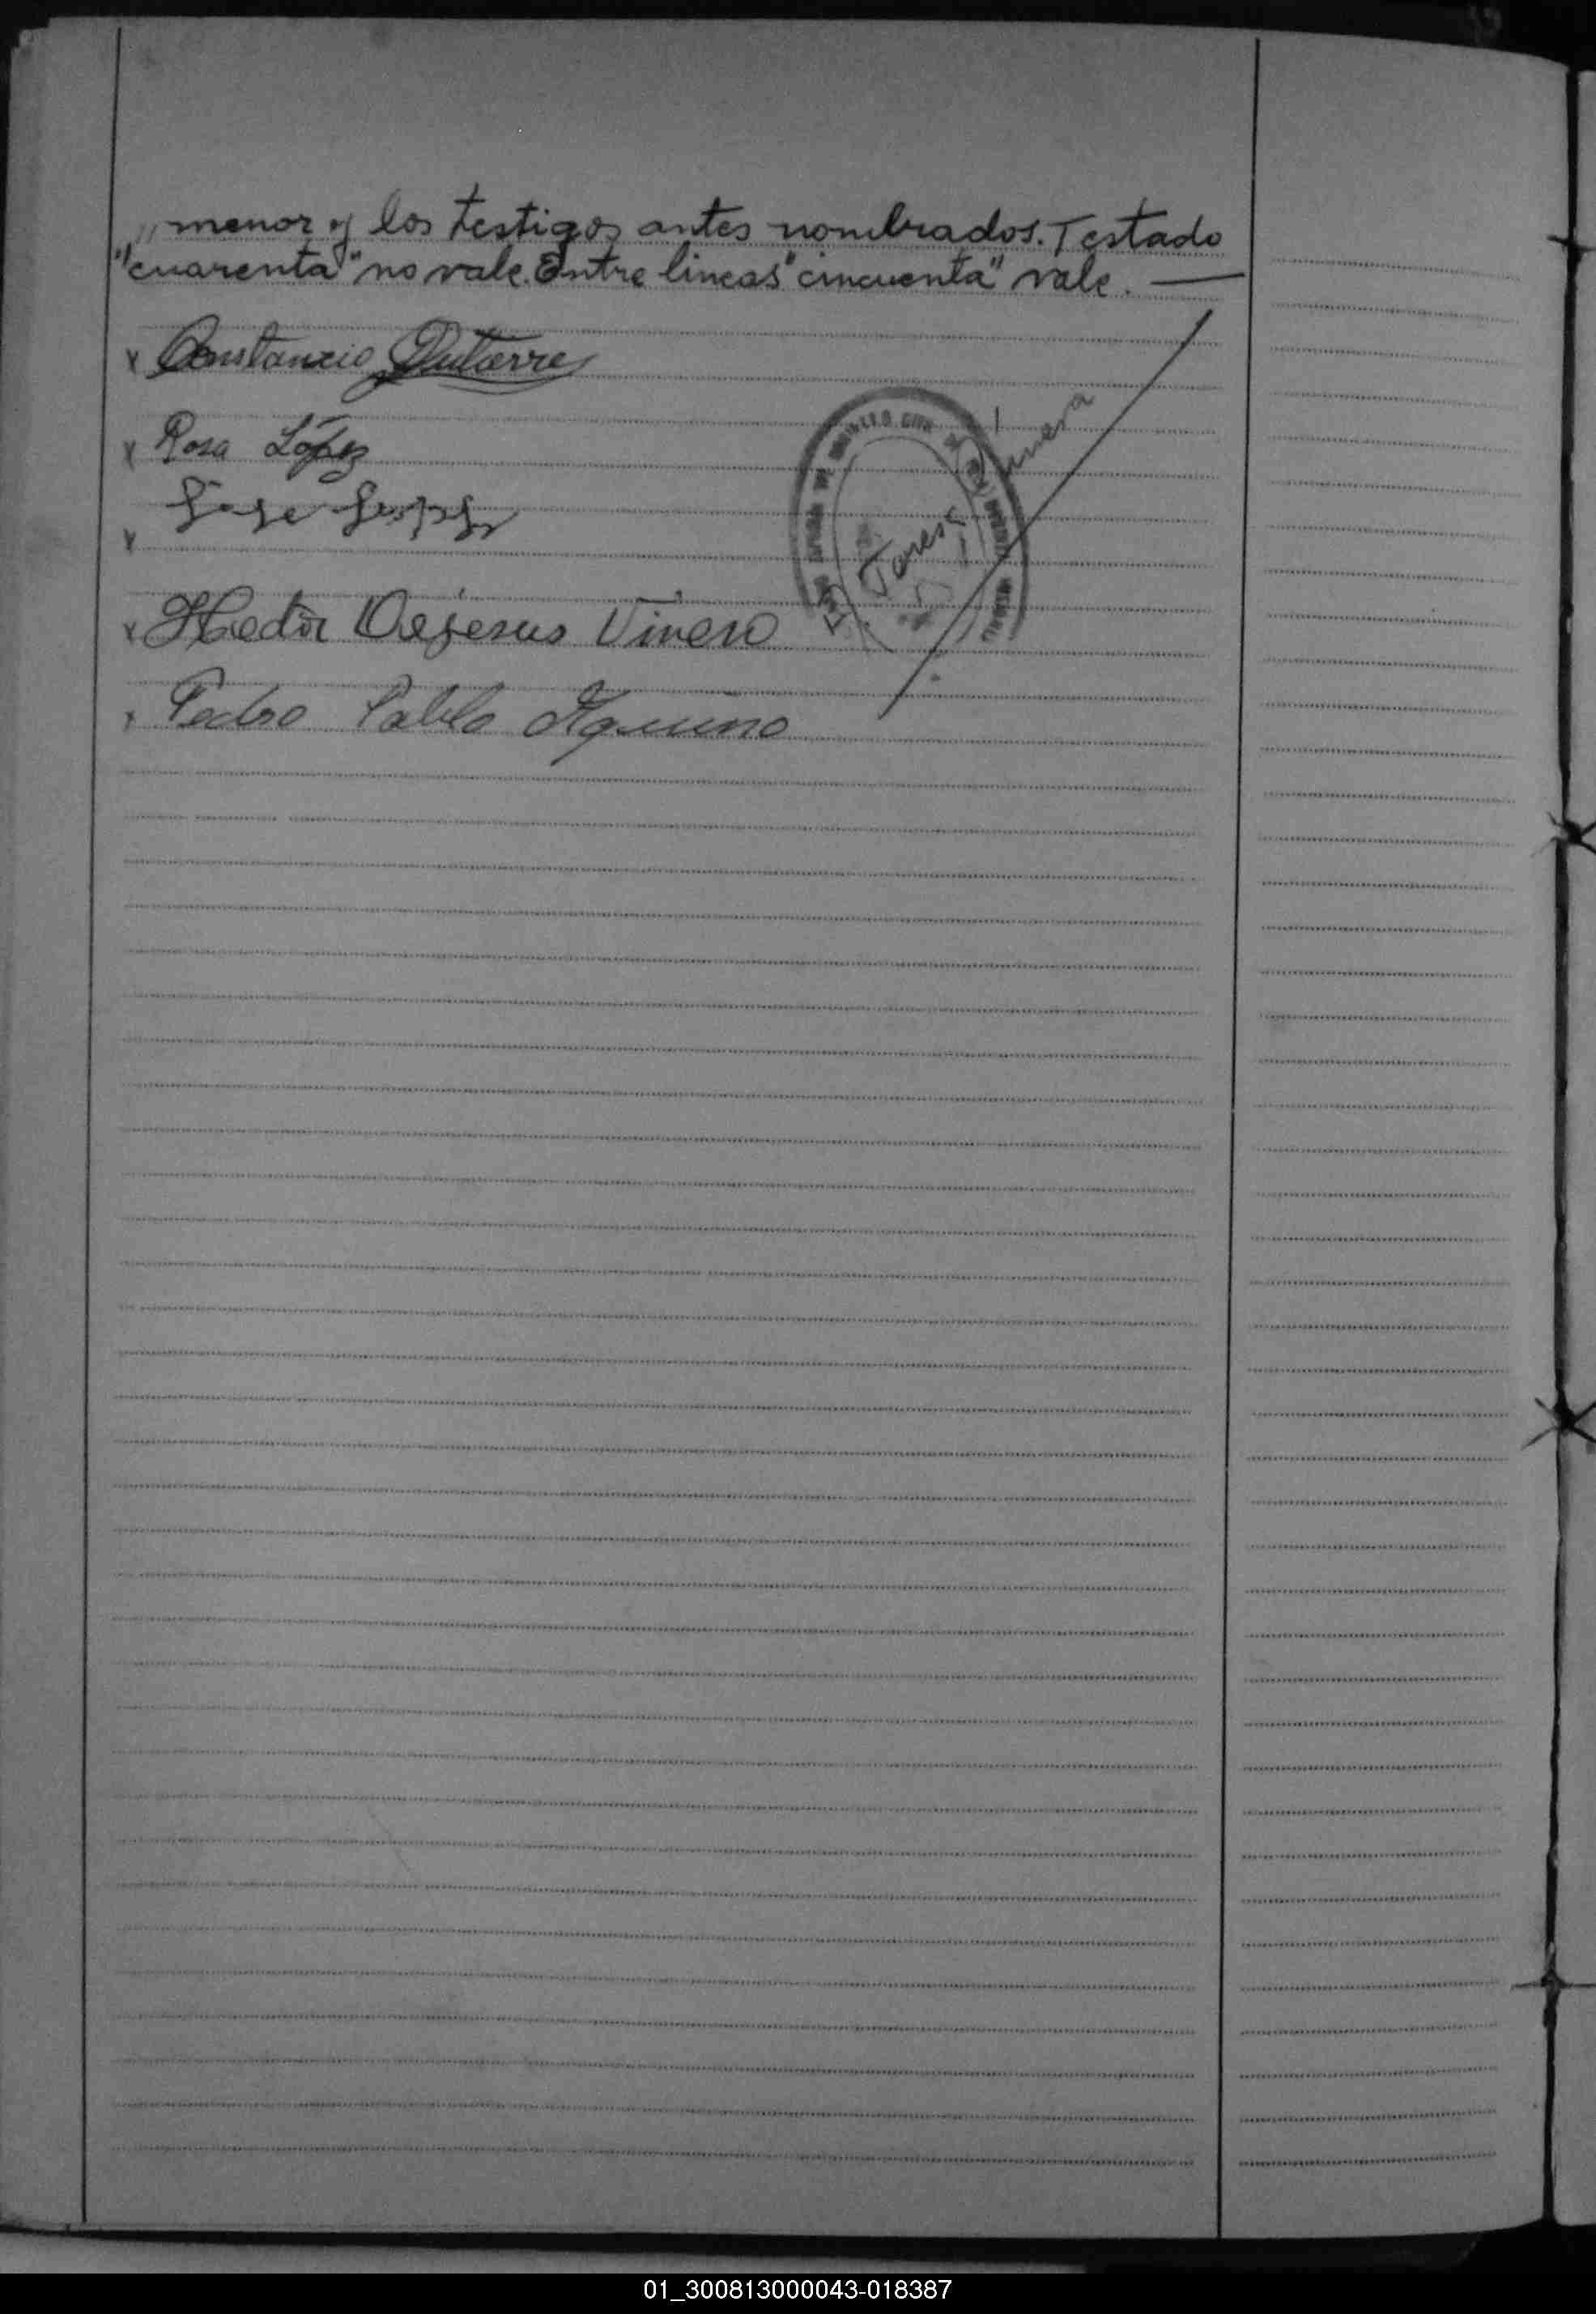 " menor y los testigos antes nombrados. Testado
"cuarenta" no vale. Entre lineas "cincuenta" vale. —
x Constancio Gutierrez
x Rosa López
x Jose
x Hector Dejesus Vivero
x Pedro Pablo Aquino
01_300813000043-018387